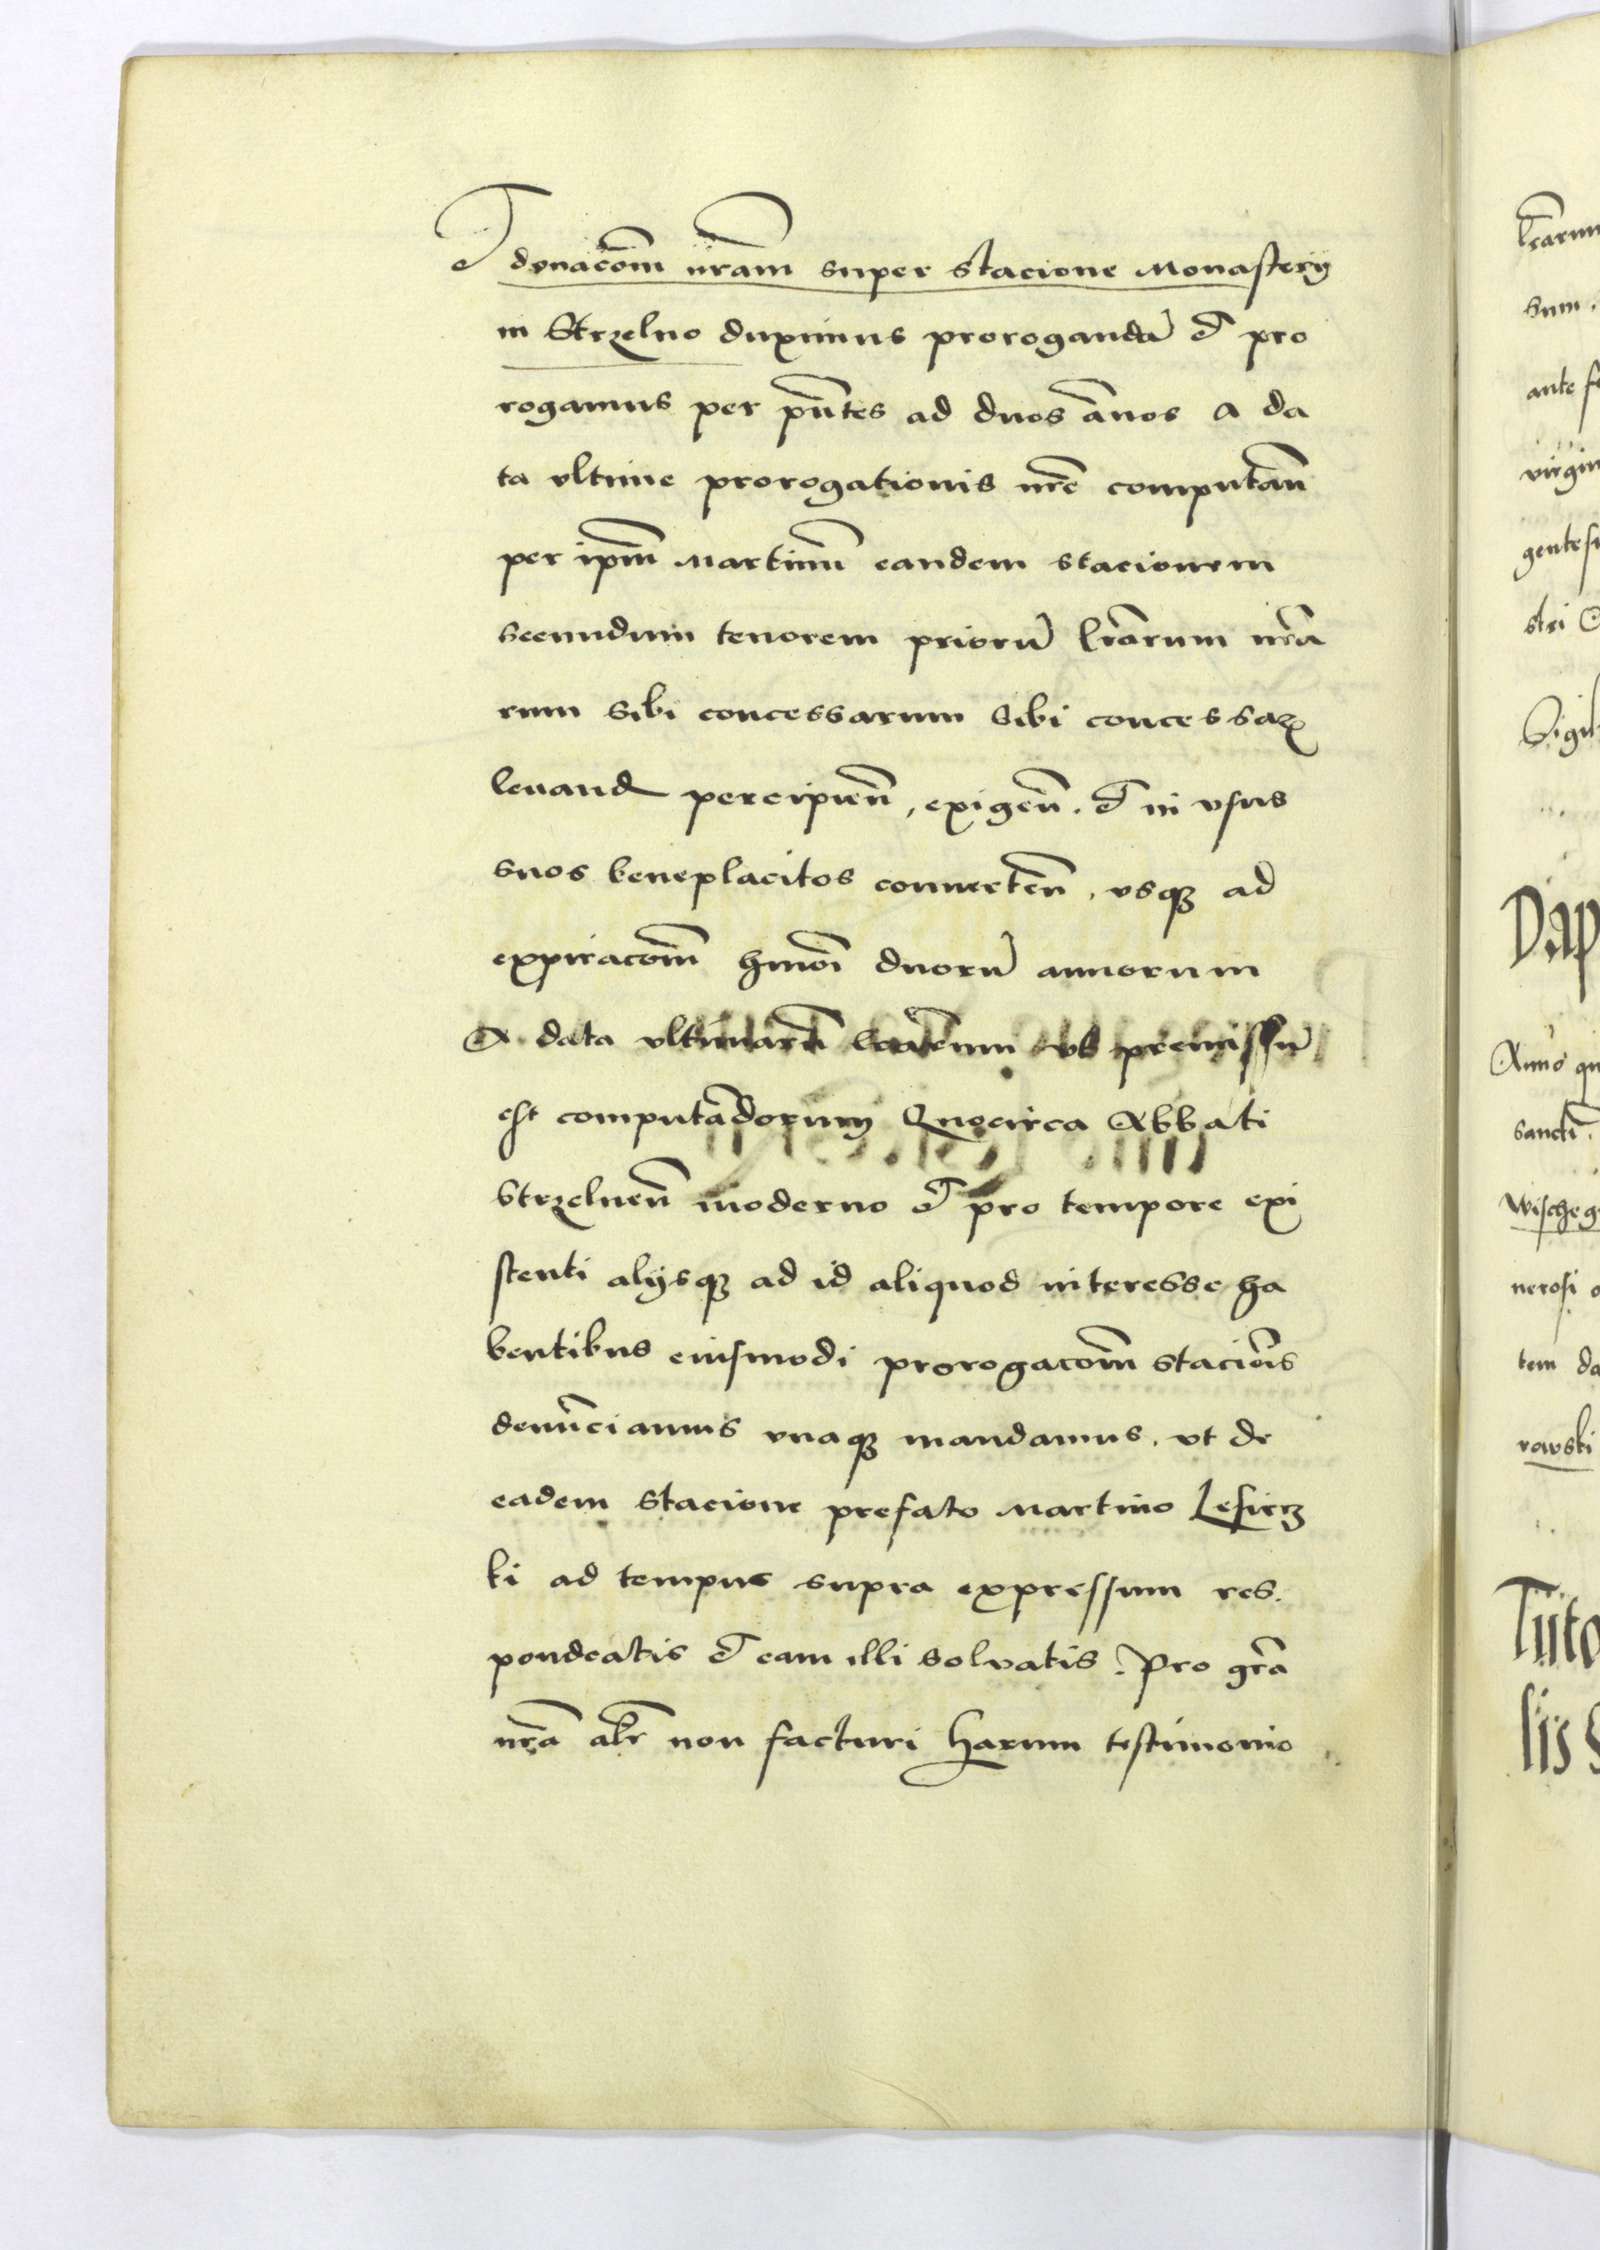 Et donacom nram super stacione Monasterij
in Strzelno duximus prorogandā et pro
rogamus per pntes ad duos ānos a da
ta vltime prorogationis nre computan
per ipm Martinū eandem stacionem
secundum tenorem priorū lrarum nra
rum sibi concessarum sibi concessarꝝ
leuand percipien, exigen. et in vsus
suos beneplacitos conuerten, vsqꝫ ad
expiracom hmoi duorū annorum
A data vltimarū lrarum vt premissū
est computādorum Quocirca Abbati
Strzelnen moderno et pro tempore exi
stenti alijsqꝫ ad id aliquod interesse ha
bentibus eiusmodi prorogacom stacionis
denūciamus vnaqꝫ mandamus. vt de
eadem stacione prefato Martino
ki ad tempus supra expressum res.
pondeatis et eam illi soluatis. Pro gra
nra alr non facturi harum testimonio
lrarum
sum.
ante
virgin
stri
Sigil
Dap
Anno qu
sancti.
Wischeg
nerosi
tem da
rowski
Tuto
lis